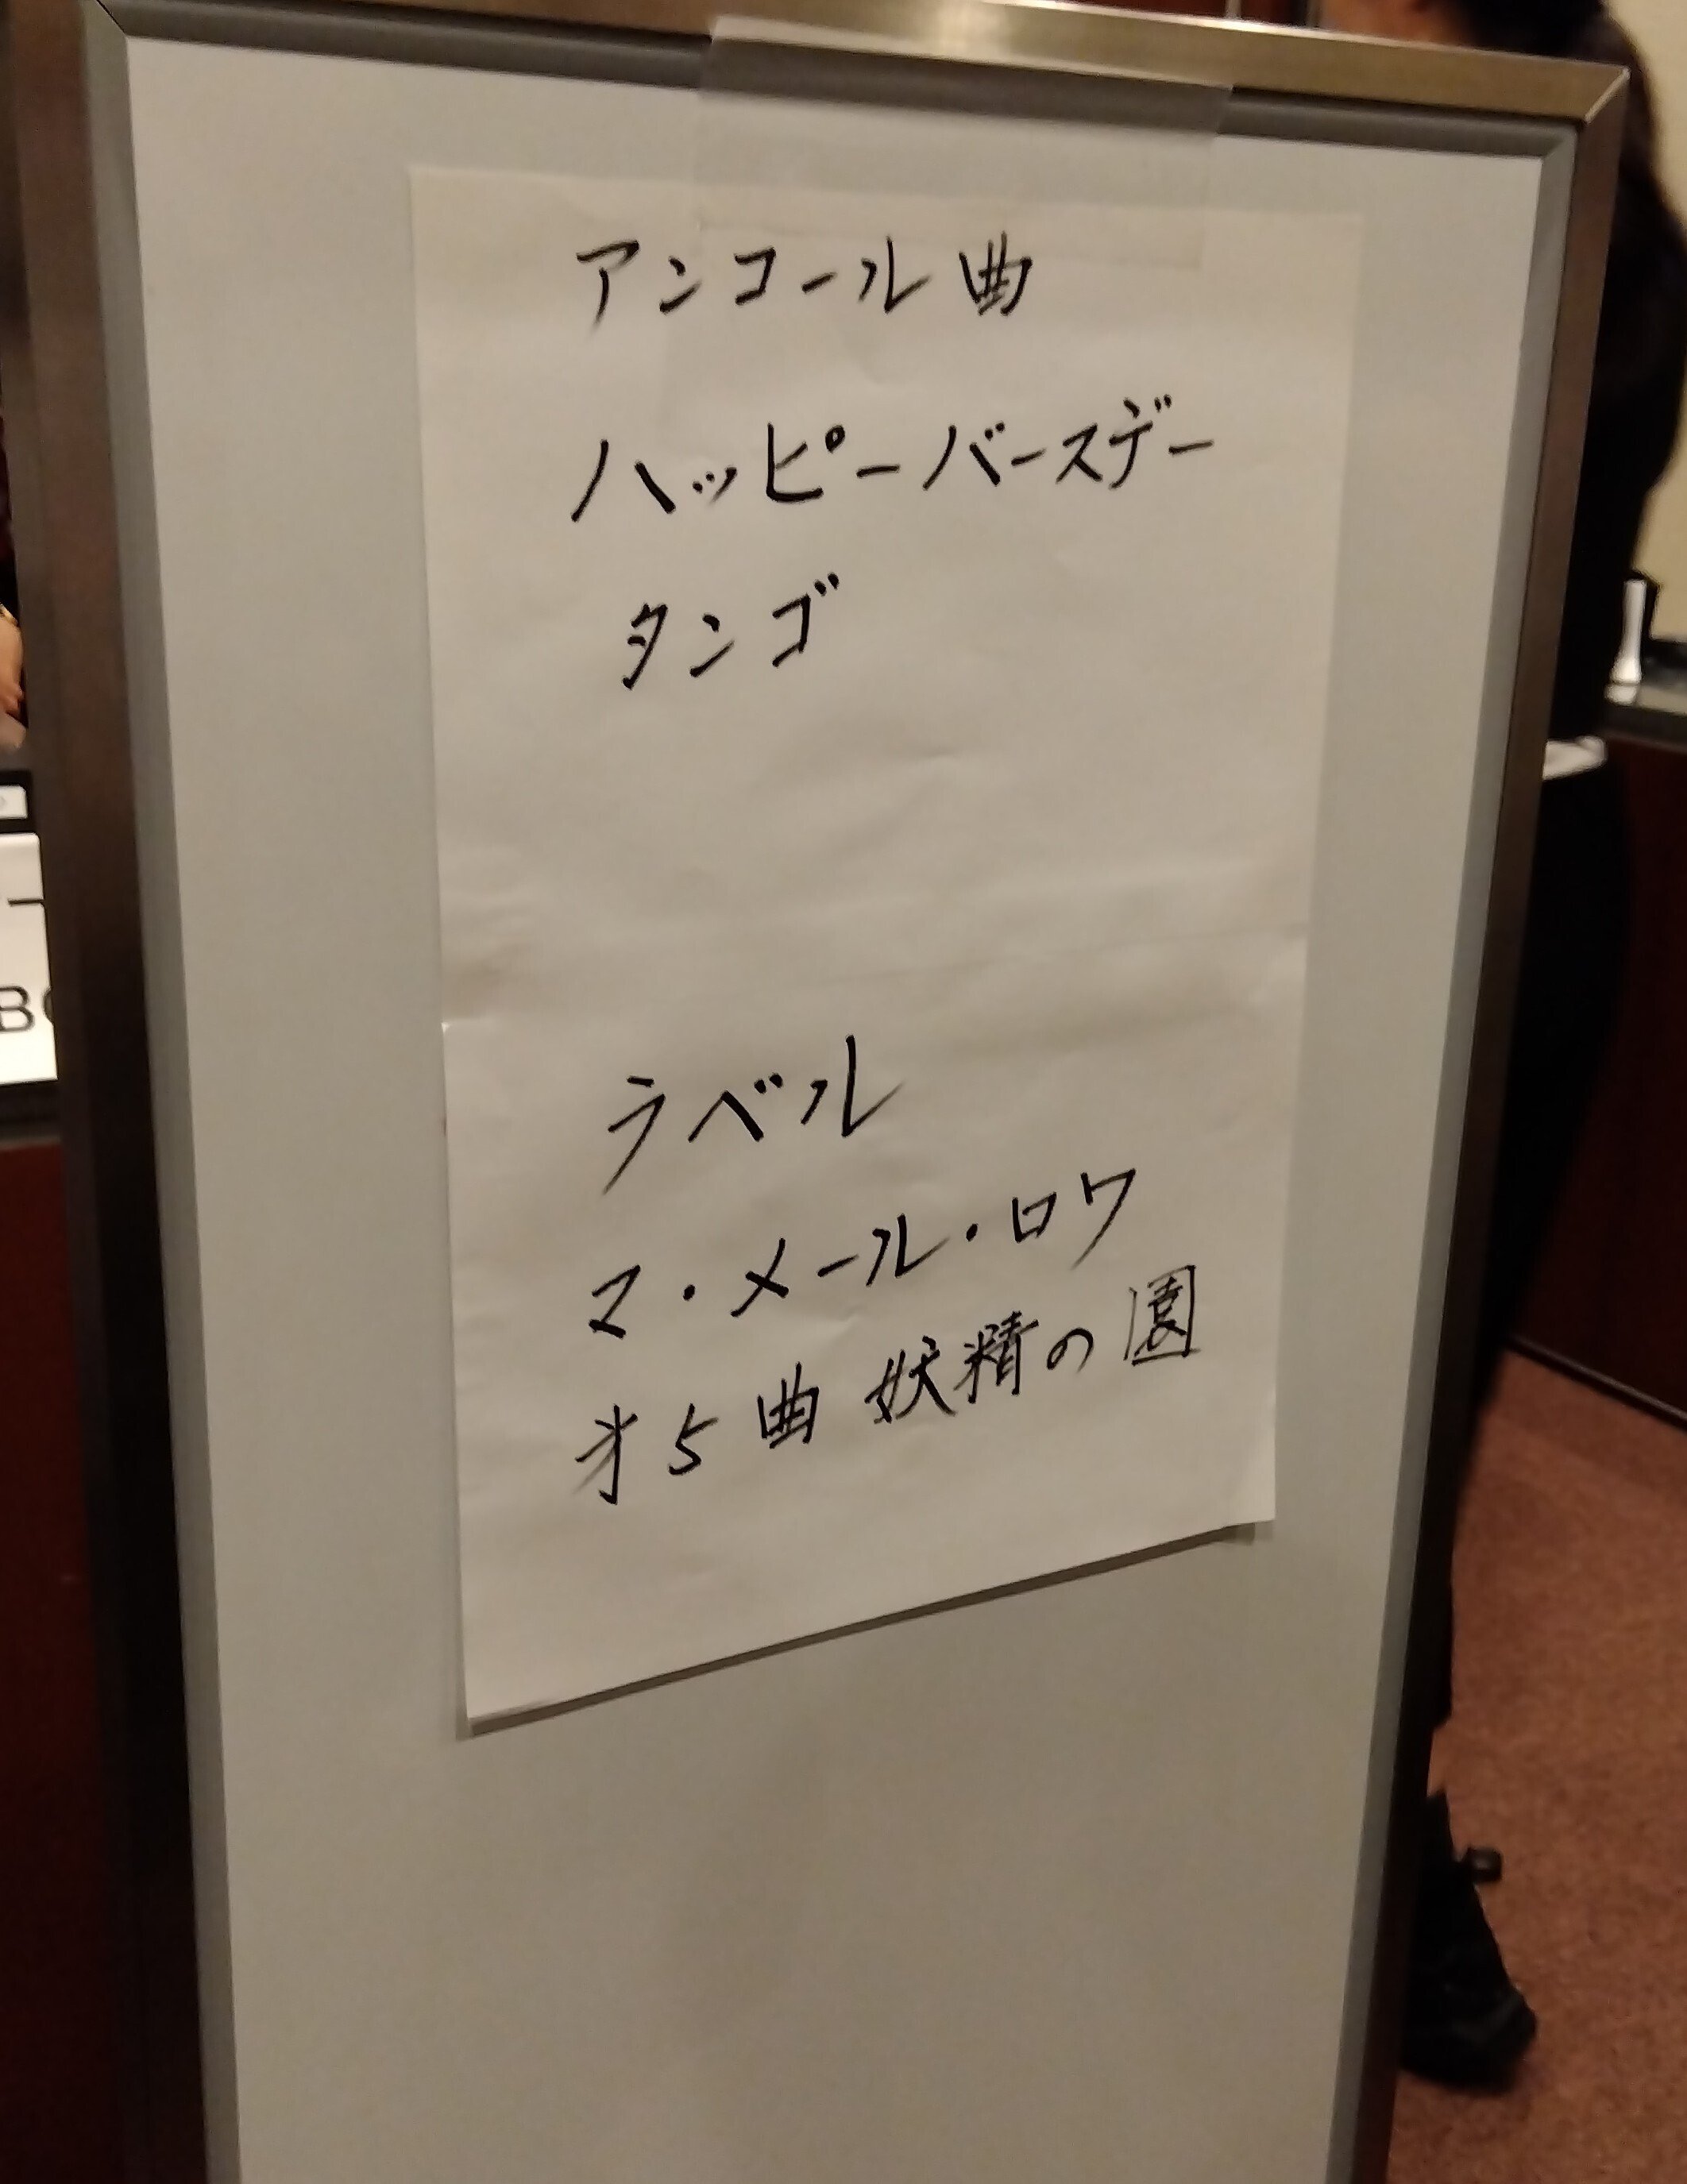 アンコール曲
ハッピーバースデー
タンゴ
ラベル
マ・メール・ロワ
才5曲 妖精の園